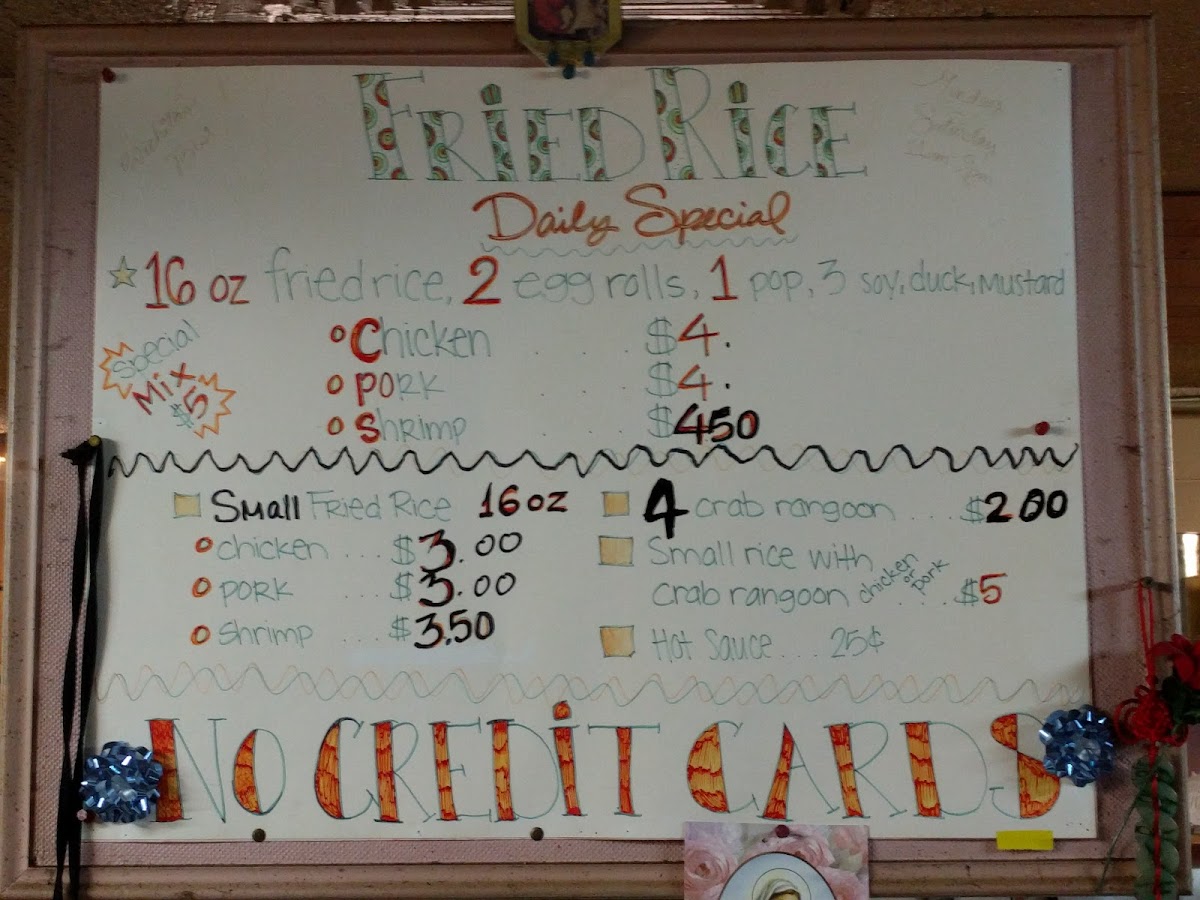 FRiED RiCE
Monday
Saturday
Daily Special
16 oz fried rice, 2 egg rolls, 1 pop, 3 soy, duck, Mustard
Special
Mix
$5
Chicken . . $4.
Pork . . $4.
Shrimp . . $450
Small Fried Rice 16 oz
chicken ... $3.00
pork ... $3.00
shrimp ... $3.50
4 crab rangoon ... $2.00
Small rice with
crab rangoon chicken or pork .... $5
Hot Sauce ... 25¢
NO CREDiT CARDS